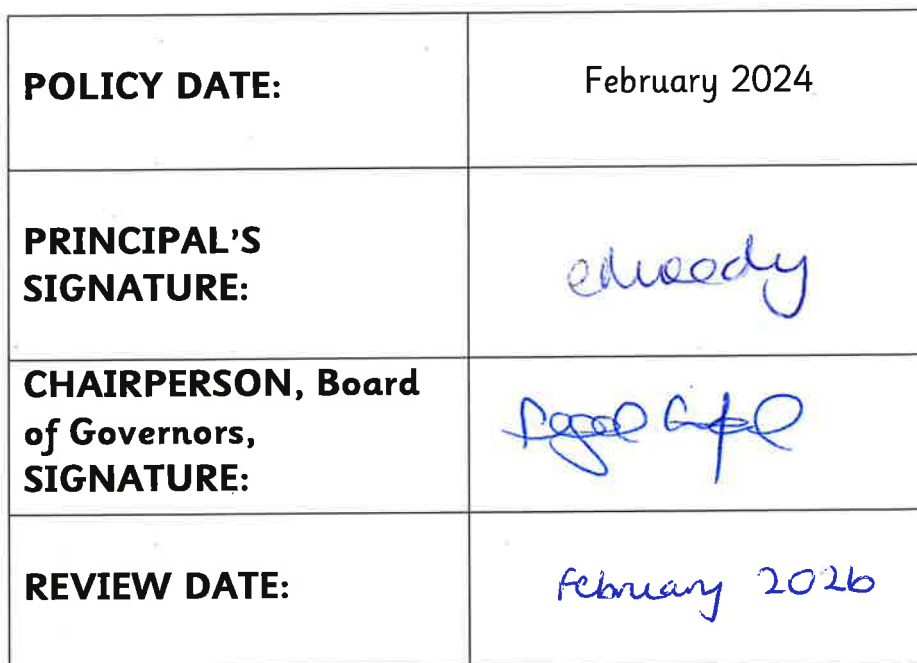 POLICY DATE:
February 2024
PRINCIPAL'S
SIGNATURE:
CHAIRPERSON, Board
of Governors,
SIGNATURE:
REVIEW DATE:
February 2026